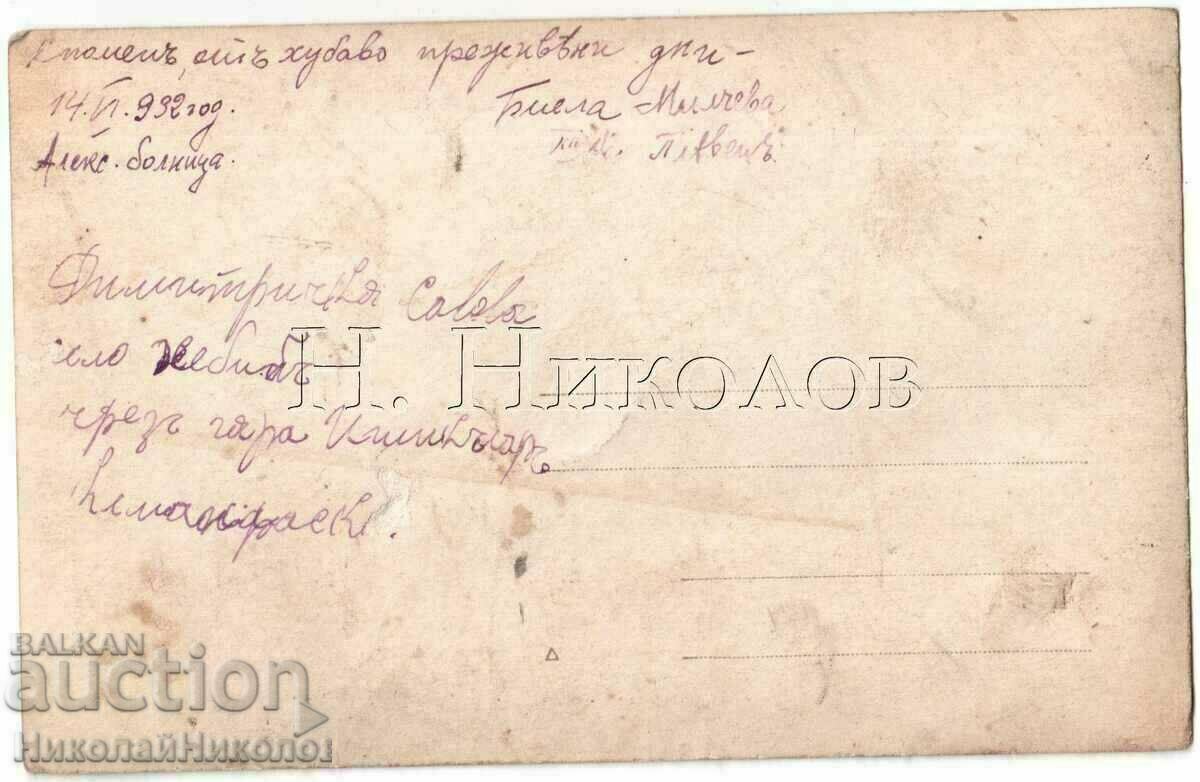 Споменъ отъ хубаво преживѣни дни –
14.VI.932 год.
Алекс. болница.
Биела Милчева
Плѣвенъ.
Димитричка Савова
село
чрезъ гара
Н. Николов
BALKAN
auction
НиколайНиколов